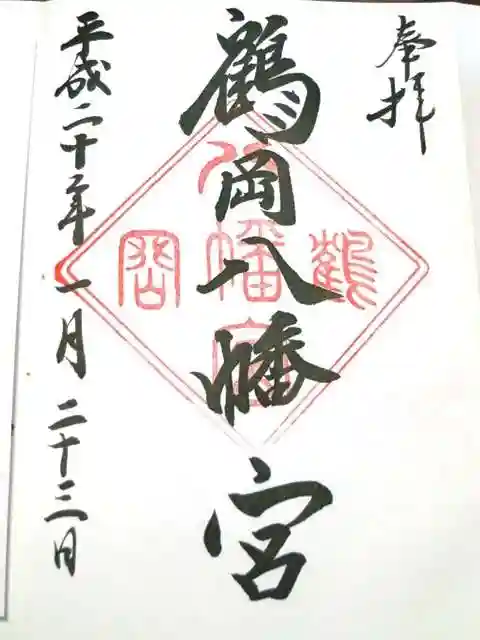 奉拝
鶴岡八幡宮
鶴岡
八幡宮
平成二十年一月二十三日